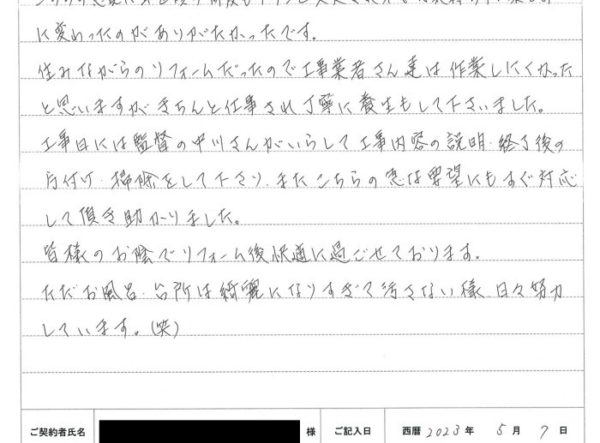 に変わったのがありがたかったです。
住みながらのリフォームだったので工事業者さん達は作業しにくかった
と思いますがきちんと仕事され丁寧に養生もして下さいました。
工事日には監督の中川さんがいらして工事内容の説明・終了後の
片付け・掃除をして下さり、またこちらの急な要望にもすぐ対応
して頂き助かりました。
皆様のお陰でリフォーム後快適に過ごせております。
ただお風呂・台所は綺麗になりすぎて汚さない様、日々努力
しています。(笑)
ご契約者氏名 様 ご記入日 西暦 2023 年 5 月 7 日